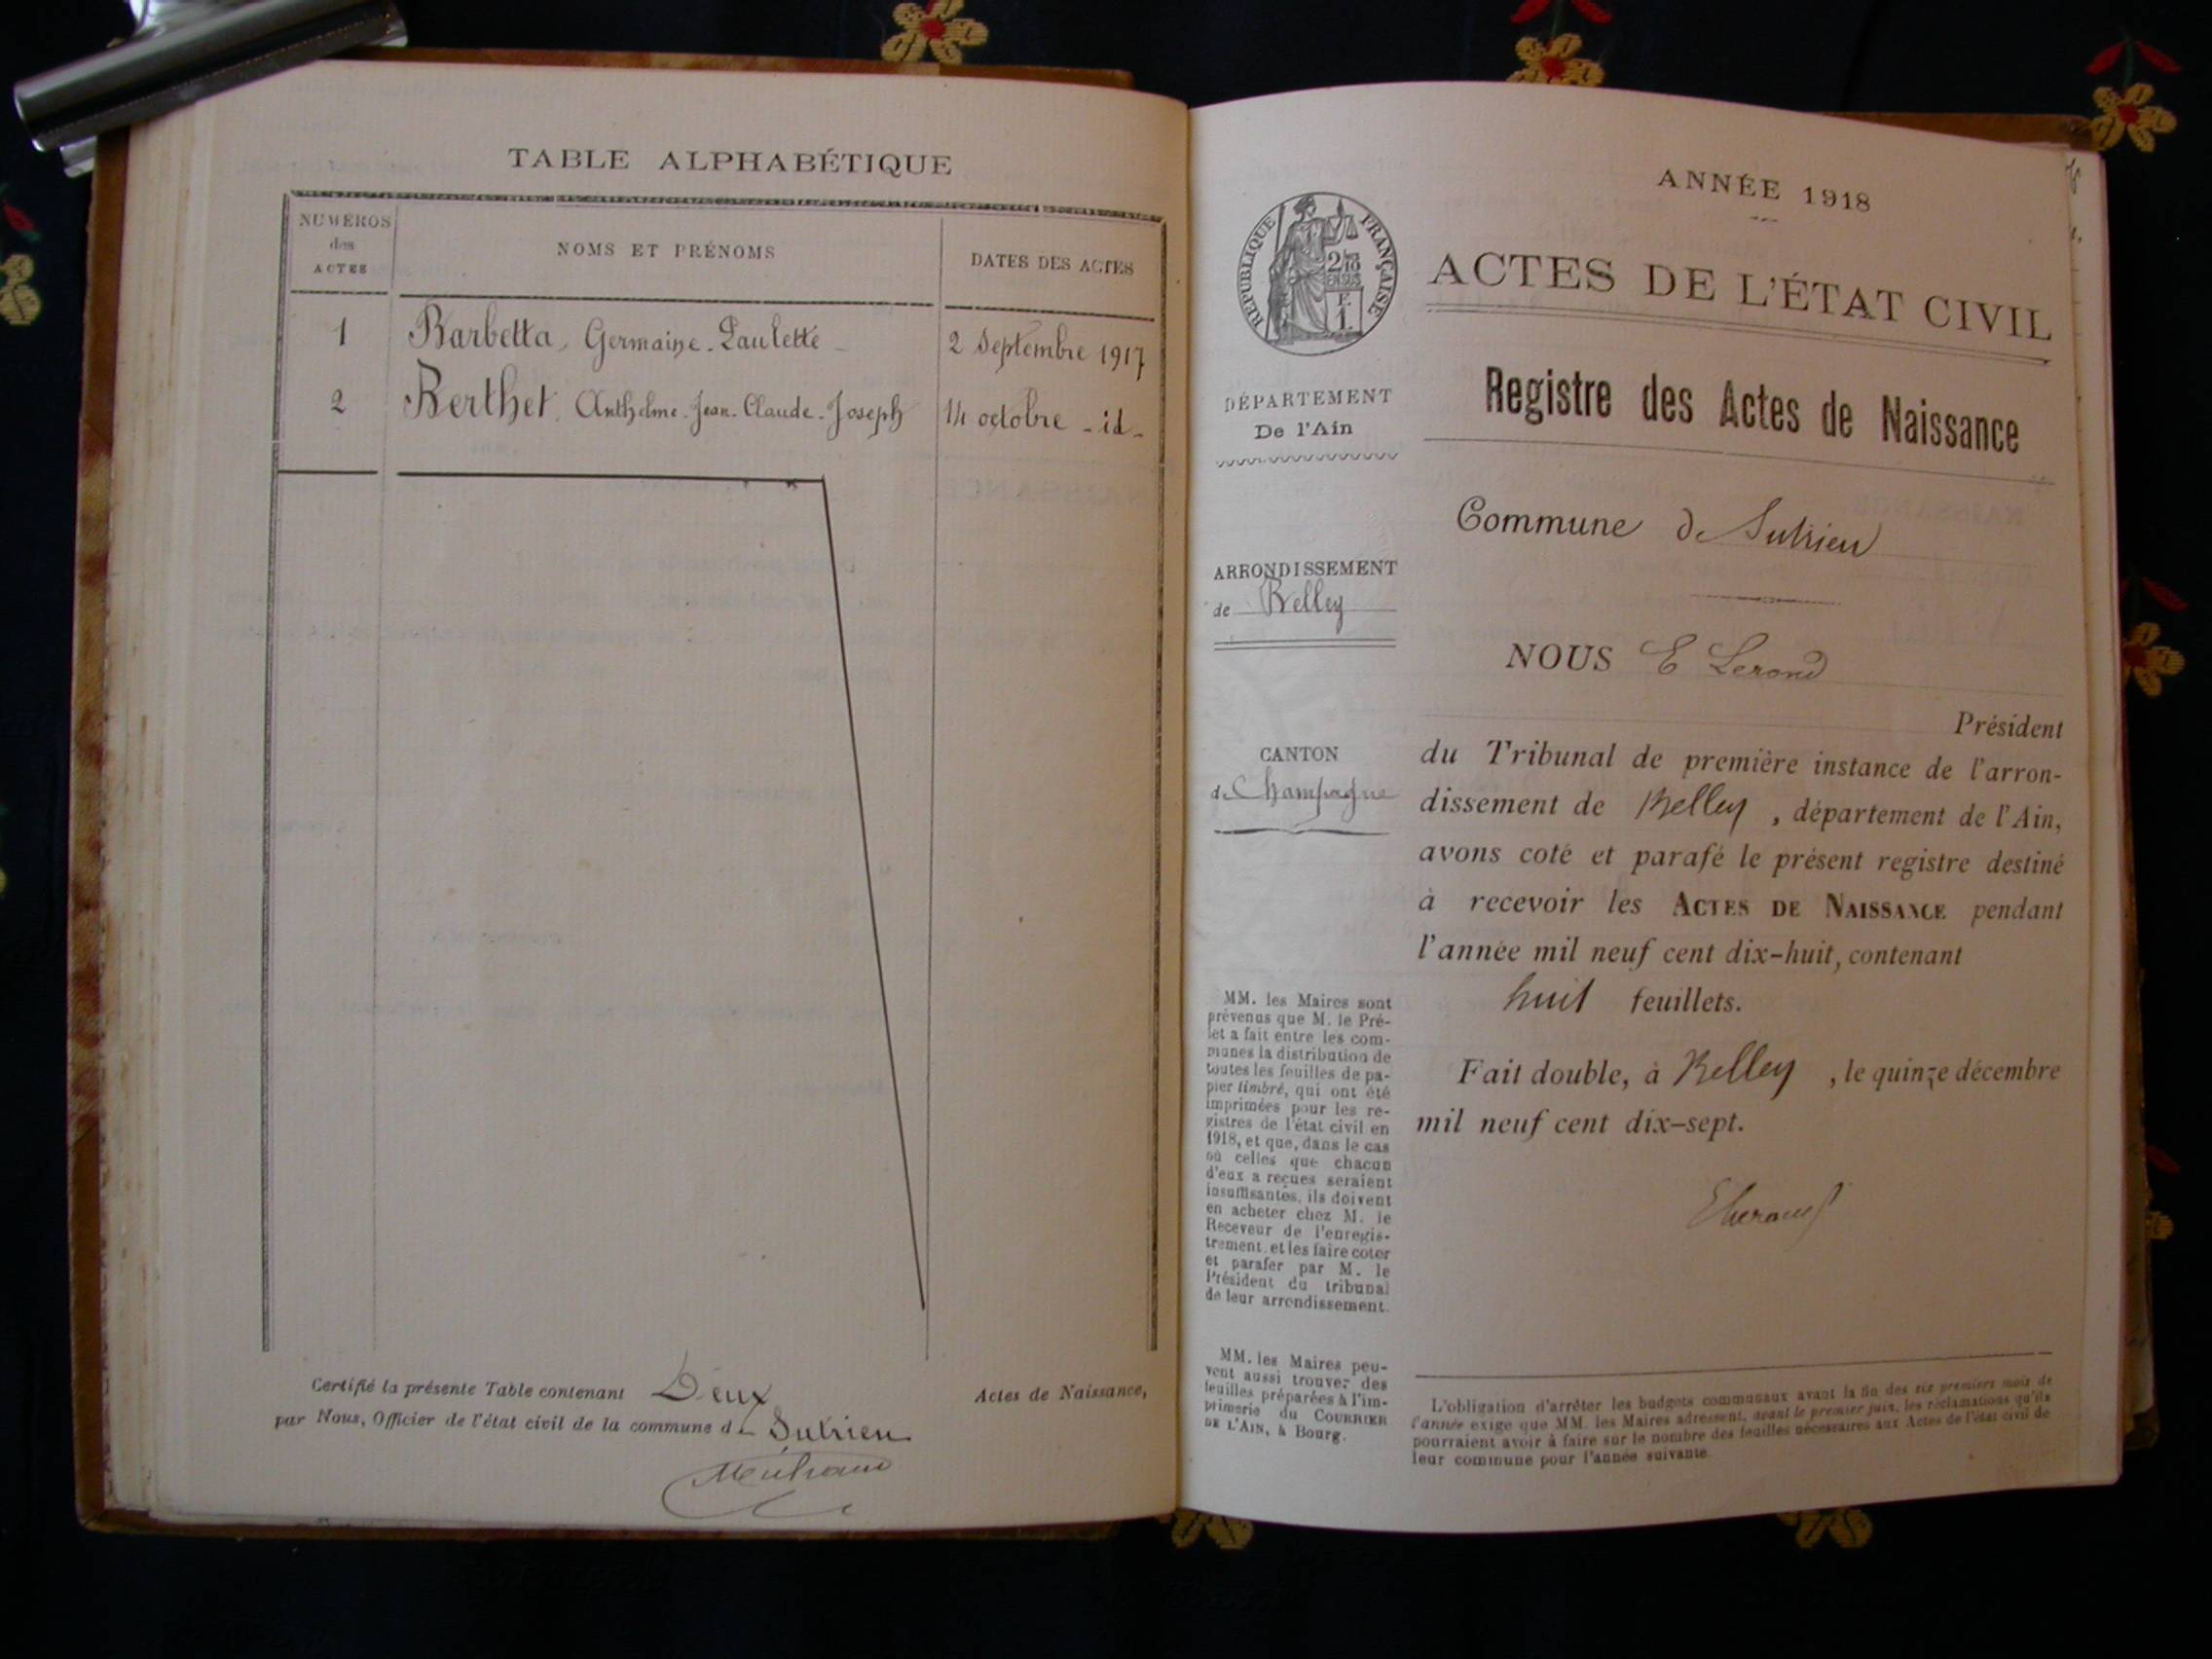 TABLE ALPHABÉTIQUE
NUMÉROS
des
ACTES
NOMS ET PRÉNOMS
DATES DES ACTES
1 Barbetta, Germaine-Paulette 2 Septembre 1917
2 Berthet Anthelme-Jean-Claude-Joseph 14 octobre - id -
Certifié la présente Table contenant Deux Actes de Naissance,
par Nous, Officier de l'état civil de la commune de Sutrieu
ANNÉE 1918
RÉPUBLIQUE FRANÇAISE
ACTES DE L'ÉTAT CIVIL
Registre des Actes de Naissance
DÉPARTEMENT
De l'Ain
Commune de Sutrieu
ARRONDISSEMENT
de Belley
NOUS E Lerond
Président
CANTON
de Champagne
du Tribunal de première instance de l'arron-
dissement de Belley, département de l'Ain,
avons coté et parafé le présent registre destiné
à recevoir les ACTES DE NAISSANCE pendant
l'année mil neuf cent dix-huit, contenant
huit feuillets.
Fait double, à Belley, le quinze décembre
mil neuf cent dix-sept.
MM. les Maires sont
prévenus que M. le Pré-
fet a fait entre les com-
munes la distribution de
toutes les feuilles de pa-
pier timbré, qui ont été
imprimées pour les re-
gistres de l'état civil en
1918, et que, dans le cas
où celles que chacun
d'eux a reçues seraient
insuffisantes, ils doivent
en acheter chez M. le
Receveur de l'enregis-
trement et les faire coter
et parafer par M. le
Président du tribunal
de leur arrondissement.
MM. les Maires peu-
vent aussi trouver des
feuilles préparées à l'im-
primerie du COURRIER
DE L'AIN, à Bourg.
L'obligation d'arrêter les budgets communaux avant la fin des six premiers mois de
l'année exige que MM. les Maires adressent, avant le premier juin, les réclamations qu'ils
pourraient avoir à faire sur le nombre des feuilles nécessaires aux Actes de l'état civil de
leur commune pour l'année suivante.